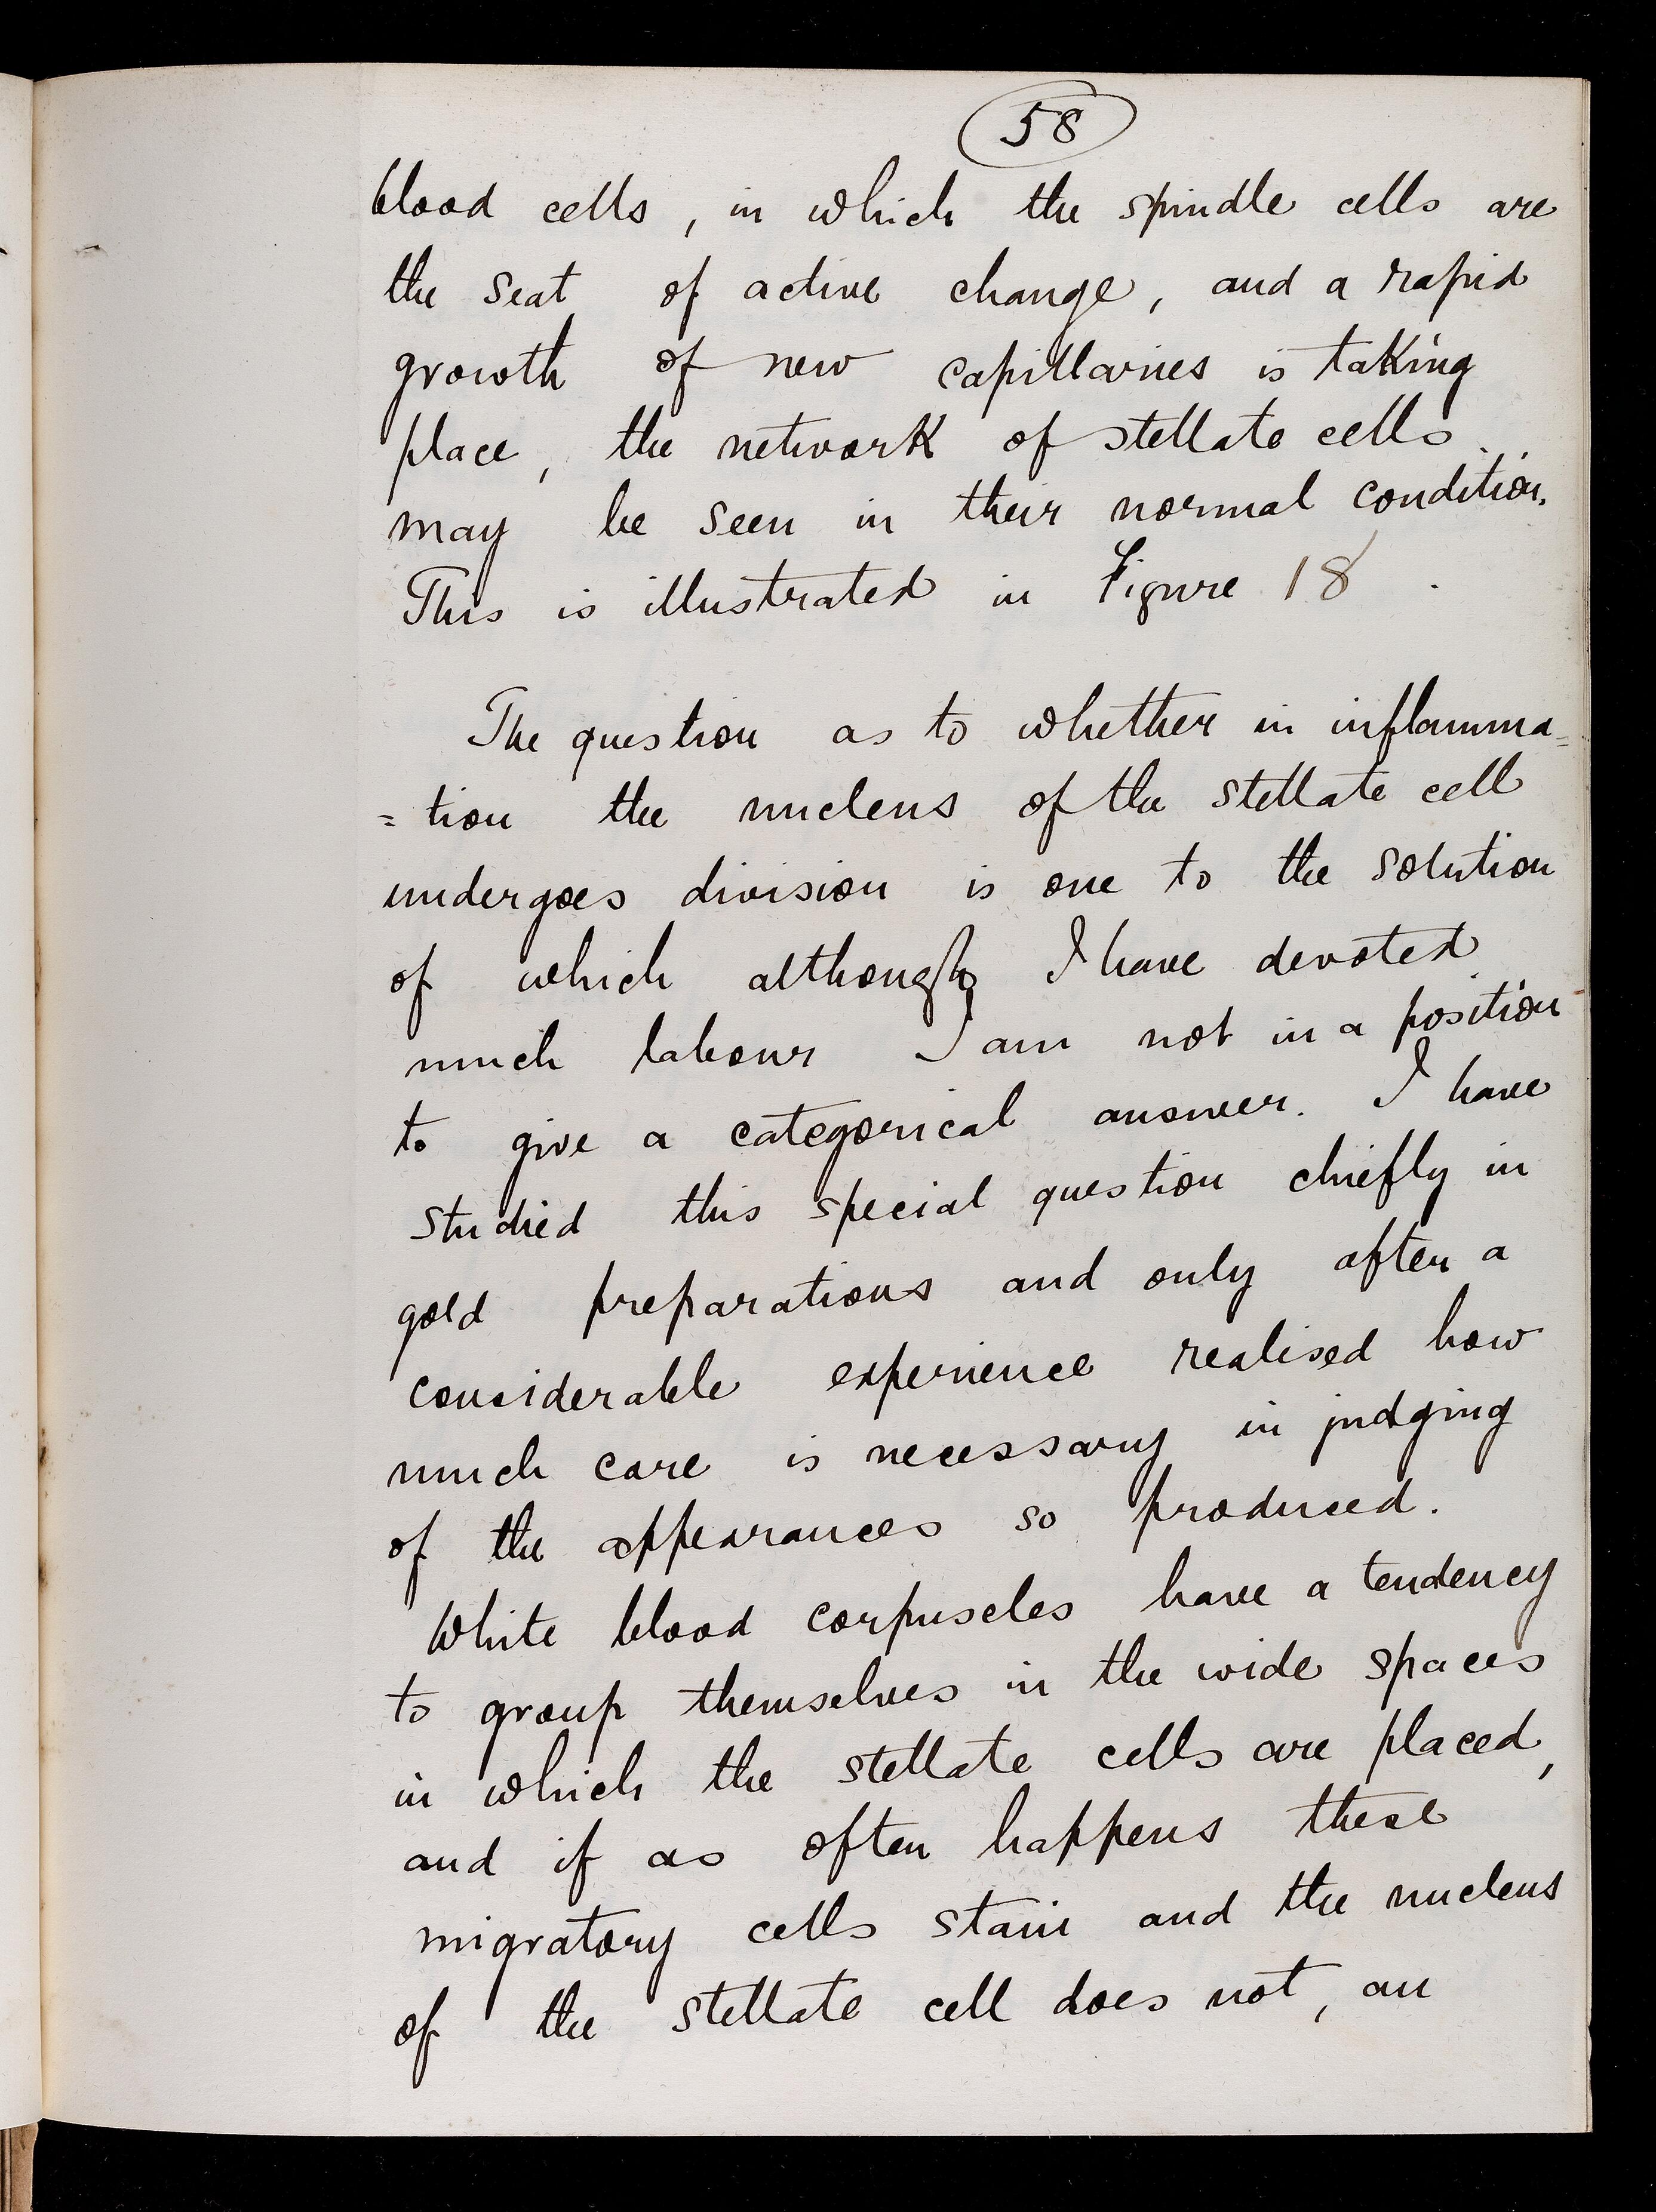 58
blood cells, in which the spindle cells are
the seat of active change, and a rapid
growth of new capillaries is taking
place, the network of stellate cells
may be seen in their normal condition.
This is illustrated in Figure 18.
The question as to whether in inflamma=
=tion the nucleus of the stellate cell
undergoes division is one to the solution
of which although I have devoted
much labour I am not in a position
to give a categorical answer. I have
studied this special question chiefly in
gold preparations and only after a
considerable experience realised how
much care is necessary in judging
of the appearances so produced.
White blood corpuscles have a tendency
to group themselves in the wide spaces
in which the stellate cells are placed,
and if as often happens these
migratory cells stain and the nucleus
of the stellate cell does not, an